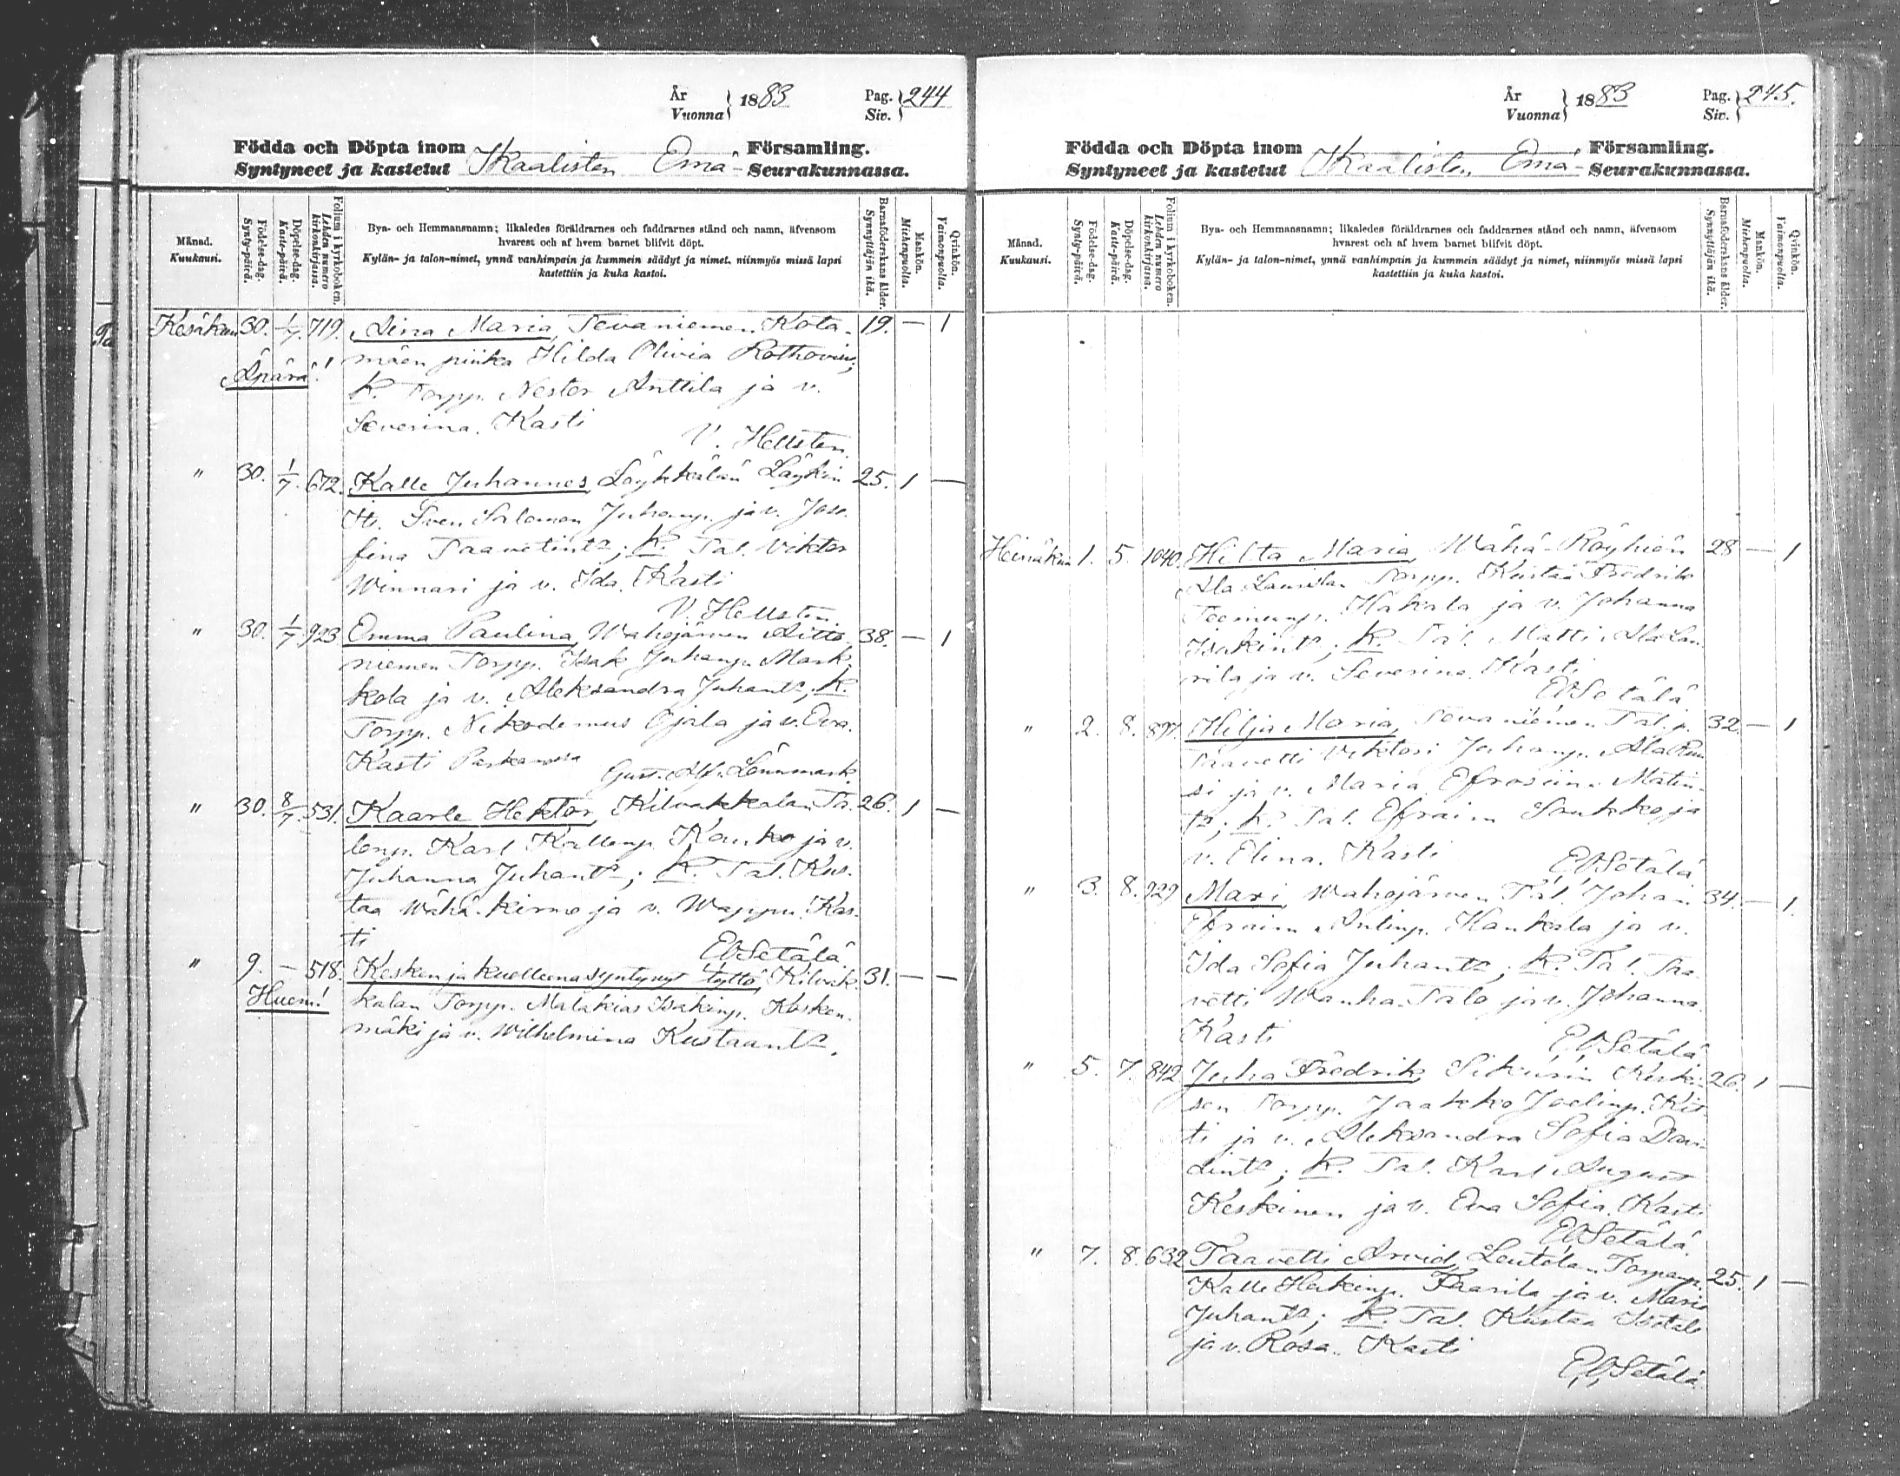 År
Vuonna } 1883
Pag.
Siv. } 244
Födda och Döpta inom
Syntyneet ja kastetut
Ikaalisten Emä-
Församling.
Seurakunnassa.
Månad.
Kuukausi.
Födelse-dag.
Synty-päivä.
Döpelse-dag.
Kaste-päivä.
Folium i kyrkoboken.
Lehden numero
kirkonkirjassa.
Bya- och Hemmansnamn; likaledes föräldrarnes och faddrarnes stånd och namn, äfvensom
hvarest och af hvem barnet blifvit döpt.
Kylän- ja talon-nimet, ynnä vanhimpain ja kummein säädyt ja nimet, niinmyös missä lapsi
kastettiin ja kuka kastoi.
Barnaföderskans ålder.
Synnyttäjän ikä.
Mankön.
Miehenpuolta.
Qvinkön.
Vaimonpuolta.
Kesäkuu 30. 1/7. 719. Aina Maria, Tevaniemen Kota- 19. — 1
Äpärä! mäen piika Hilda Olivia Rothovius;
K. Torpp. Nestor Anttila ja v.
Severina. Kasti
V. Hellsten.
" 30. 1/7. 672. Kalle Juhannes, Läykkälän Läykin 25. 1 —
Its. Sven Salomon Juhanp. ja v. Jose-
fina Taavetint:; K. Tal. Viktor
Winnari ja v. Ida. Kasti
V. Hellsten.
" 30. 1/7. 923. Emma Paulina, Wahojärven Aitto- 38. — 1
niemen Torpp. Isak Juhanp. Mark-
kola ja v. Aleksandra Juhant:; K.
Torpp. Nikodemus Ojala ja v. Eva.
Kasti Parkanossa Gust. Alf. Lönnmark.
" 30. 8/7. 531. Kaarle Hektor, Kilvakkalan Ta- 26. 1 —
lonp. Karl Kallenp. Kauko ja v.
Juhanna Juhant:; K. Tal. Kus-
taa Wähä-Kirmo ja v. Wappu. Kas-
ti
E. Setälä.
" 9. — 518. Kesken ja kuolleena syntynyt tyttö, Kilvak- 31. — —
Huom! kalan Torpp. Malakias Isakinp. Kosken-
mäki ja v. Wilhelmina Kustaant:.
År
Vuonna } 1883
Pag.
Siv. } 245.
Födda och Döpta inom
Syntyneet ja kastetut
Ikaalisten Emä-
Församling.
Seurakunnassa.
Månad.
Kuukausi.
Födelse-dag.
Synty-päivä.
Döpelse-dag.
Kaste-päivä.
Folium i kyrkoboken.
Lehden numero
kirkonkirjassa.
Bya- och Hemmansnamn; likaledes föräldrarnes och faddrarnes stånd och namn, äfvensom
hvarest och af hvem barnet blifvit döpt.
Kylän- ja talon-nimet, ynnä vanhimpain ja kummein säädyt ja nimet, niinmyös missä lapsi
kastettiin ja kuka kastoi.
Barnaföderskans ålder.
Synnyttäjän ikä.
Mankön.
Miehenpuolta.
Qvinkön.
Vaimonpuolta.
Heinäkuu 1. 5. 1040. Hilta Maria, Wähä-Röyhiön 28 — 1
Ala Laurilan Torpp. Kustaa Fredrik
Teemunp. Hakala ja v. Johanna
Isakint:; K. Tal. Matti Ala Lau-
rila ja v. Severina. Kasti
E. Setälä.
" 2. 8. 897. Hilja Maria, Tevaniemen Tal. p. 32. — 1
Taavetti Viktori Juhanp. Ala
si ja v. Maria Efrosiina Matin-
t:; K. Tal. Efraim Saukko ja
v. Elina. Kasti
E. Setälä.
" 3. 8. 929 Mari, Wahojärven Tal. Johan 34. — 1.
Efraim Antinp. Hankala ja v.
Ida Sofia Juhant:; K. Tal. Taa-
vetti Wanha-Talo ja v. Johanna.
Kasti
E. Setälä
" 5. 7. 842 Juha Fredrik, Sikurin Keski- 26. 1 —
sen Torpp. Jaakko Joelinp. Kit-
ti ja v. Aleksandra Sofia Davi-
dint:; K. Tal. Karl August
Keskinen ja v. Eva Sofia. Kasti
E. Setälä.
" 7. 8. 632 Taavetti Arvid, Leutolan Torpanp. 25. 1 —
Kalle Heikinp. Kaarila ja v. Maria
Juhant:; K. Tal. Kustaa Isotalo
ja v. Rosa. Kasti
E. Setälä.